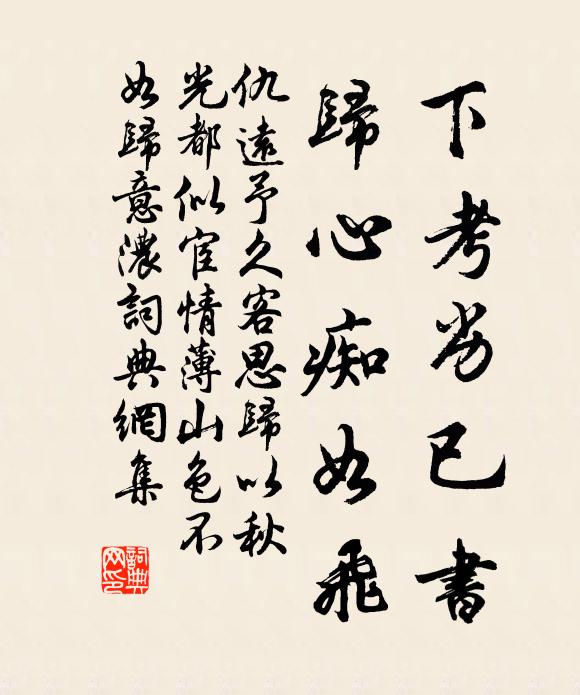 下考劣已書
歸心痴如飛
仇遠予久客思歸以秋
光都似宦情薄山色不
如歸意濃詞典網集
詞典網印